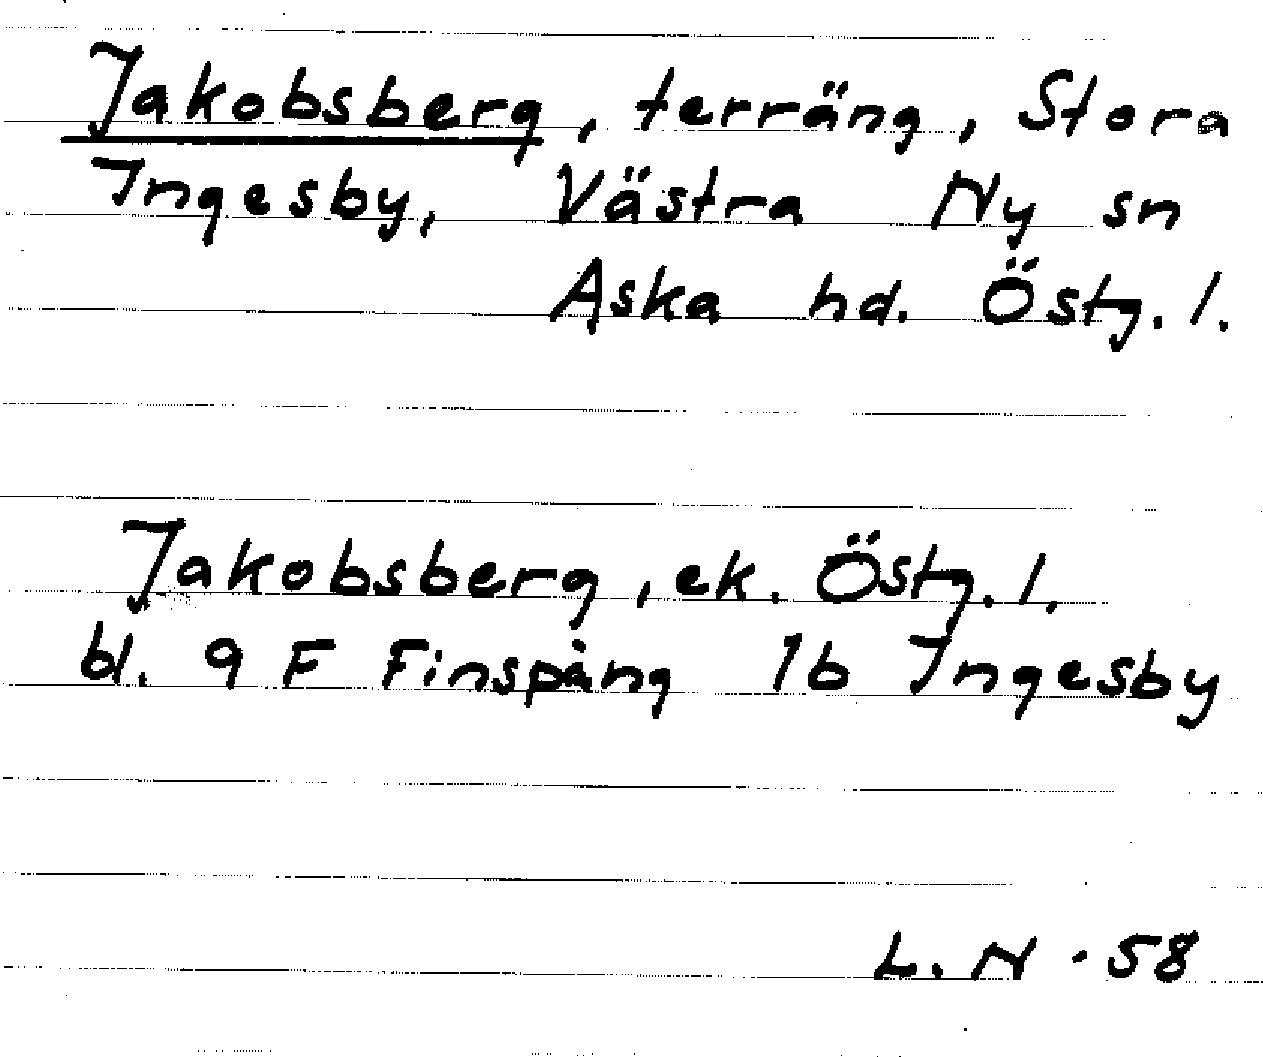 Jakobsberg, terräng, Stora
Ingesby, Västra Ny sn
Aska hd. Östg. l.
Jakobsberg, ek. Östg. l.
bl. 9 F Finspång 1b Ingesby
L. N -58